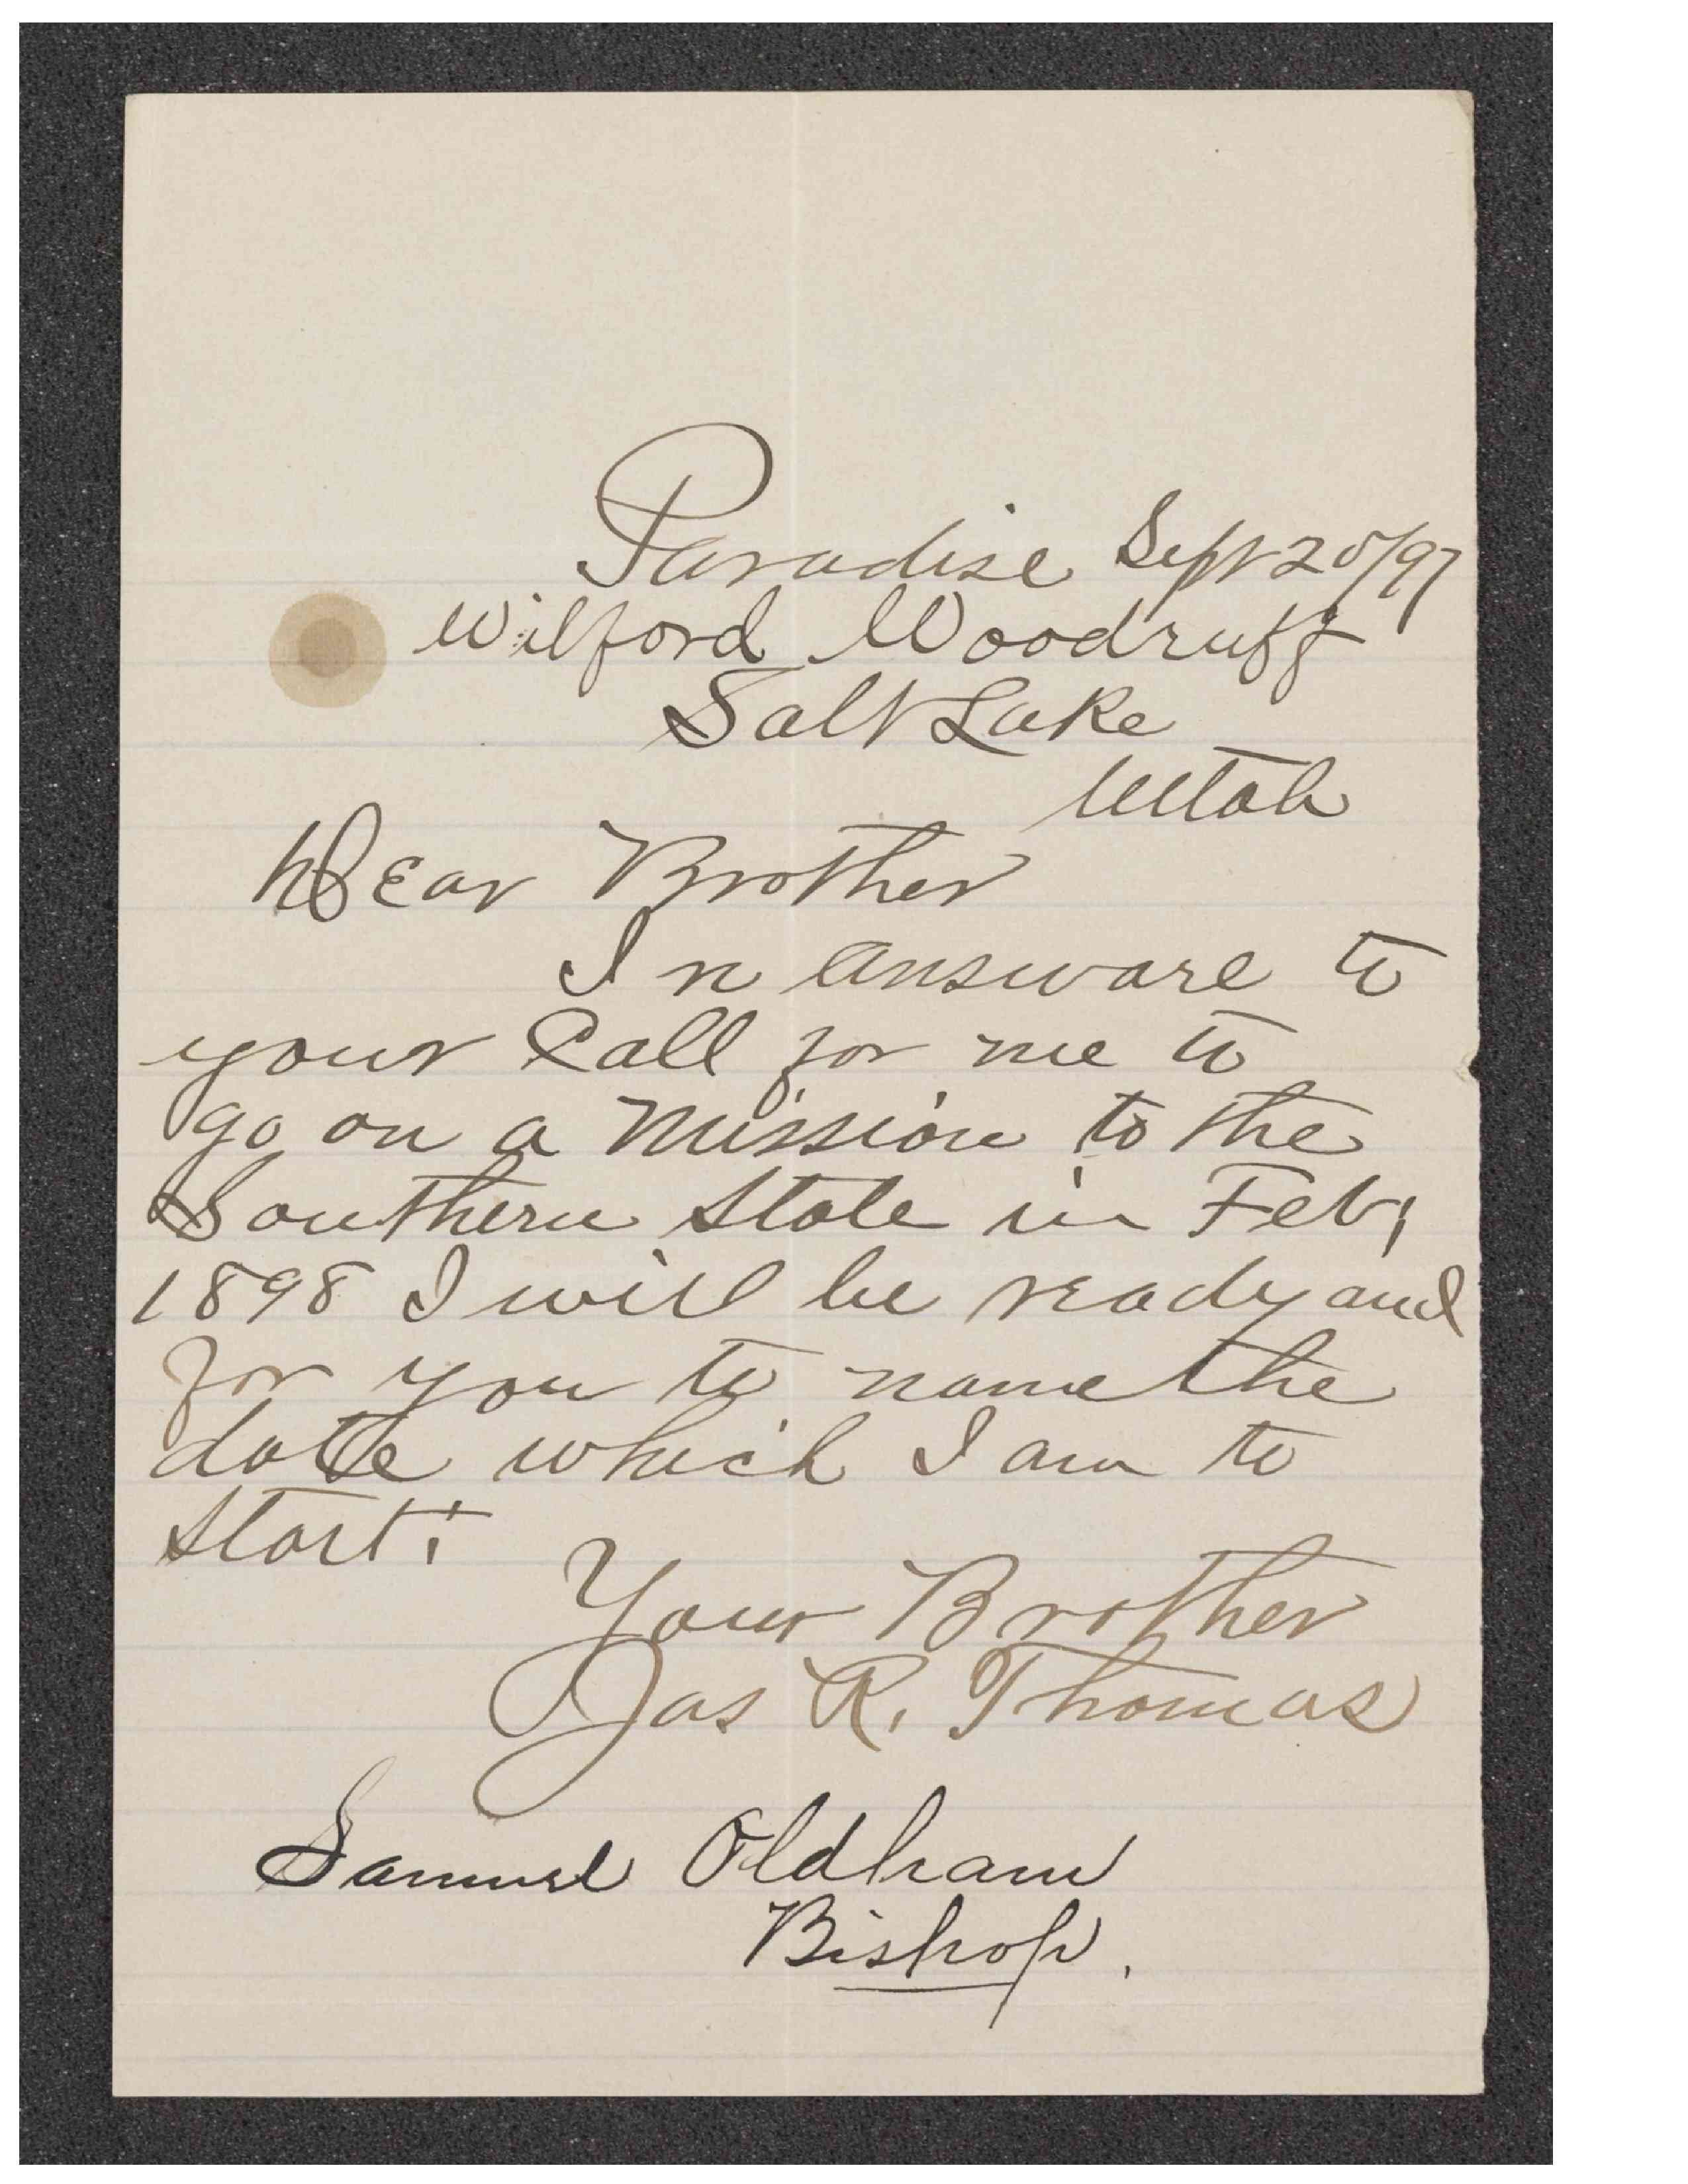 Paradise Sept 20/97
Wilford Woodruff
Salt Lake
Utah
Dear Brother
In answare to
your Call for me to
go on a Mission to the
Southern State in Feb,
1898 I will be ready and
for you to name the
date which I am to
start.
Your Brother
Jas R. Thomas
Samuel Oldham
Bishop.